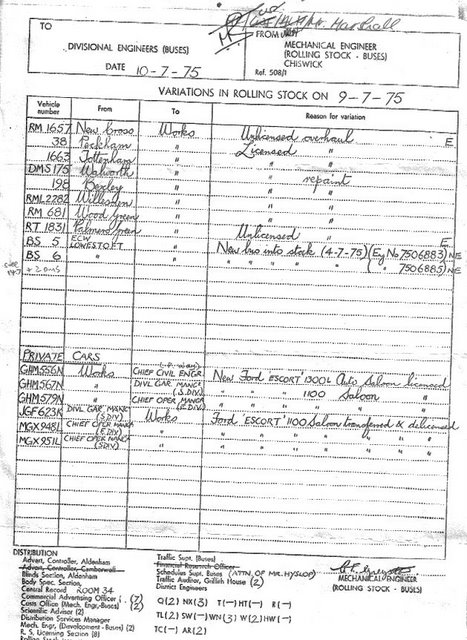 TO
Marshall
FROM
DIVISIONAL ENGINEERS (BUSES)
MECHANICAL ENGINEER
(ROLLING STOCK - BUSES)
CHISWICK
DATE 10-7-75
Ref. 508/1
VARIATIONS IN ROLLING STOCK ON 9-7-75
Vehicle number From To Reason for variation
RM 1657 New Cross Works Unlicensed overhaul E
38 Peckham " Licensed "
1663 Tottenham " " "
DMS 175 Walworth " " repaint
198 Bexley " " "
RML 2282 Willesden " " "
RM 681 Wood Green " " "
RT 1831 Palmers Green " Unlicensed " E
BS 5 ECW LOWESTOFT " New bus into stock (4-7-75) (Eng No 7506883) N/E
BS 6 " " " " " " " ( " 7506885) N/E
+ 2 DMS
PRIVATE CARS
GHM 556N Works CHIEF CIVIL ENGR. New Ford ESCORT 1300L Auto Saloon licensed
GHM 567N " DIVL GAR MANGR (S.DIV) " " " 1100 Saloon "
GHM 579N " CHIEF OPER MANGR (E.DIV) " " " " " "
JGF 623K DIVL GAR MANGR (S.DIV) Works Ford 'ESCORT' 1100 Saloon transferred & delicensed
MGX 948L CHIEF OPER MANGR (E.DIV) " " " " " " "
MGX 951L CHIEF OPER MANGR (S.DIV) " " " " " " "
DISTRIBUTION
Advert. Controller, Aldenham
Advert. Controller, Camberwell
Blinds Section, Aldenham
Body Spec. Section,
Central Record ROOM 34
Commercial Advertising Officer (7)
Costs Office (Mech. Engr, Buses) (2)
Scientific Adviser (2)
Distribution Services Manager
Mech. Engr, (Development - Buses) (2)
R. S. Licensing Section (8)
Traffic Supt. (Buses)
Financial Research Officer
Schedules Supt. Buses (ATTN. OF MR. HYSLOP)
Traffic Auditor, Griffith House (2)
District Engineers
Q (2) NX (3) T (—) HT (—) R (—)
TL (2) SW (—) WN (3) W (2) HW (—)
TC (—) AR (2)
MECHANICAL ENGINEER
(ROLLING STOCK - BUSES)